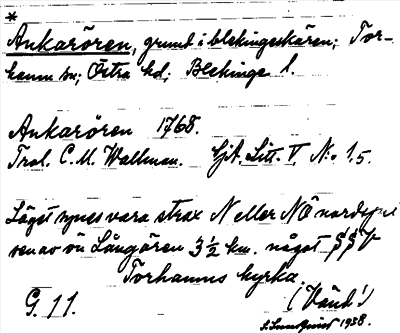 *
Ankarören, grund i blekingeskären; Tor-
hamn sn; Östra hd; Blekinge l.
Ankarören 1768.
Trol. C. M. Wallman. Sjk. Litt. V No 1,5.
Läget synes vara strax N eller NÖ nordspet
sen av ön Långören 3½ km. något SSV
Torhamns kyrka.
G. 11. (Vänd!)
S. Lundquist 1938.